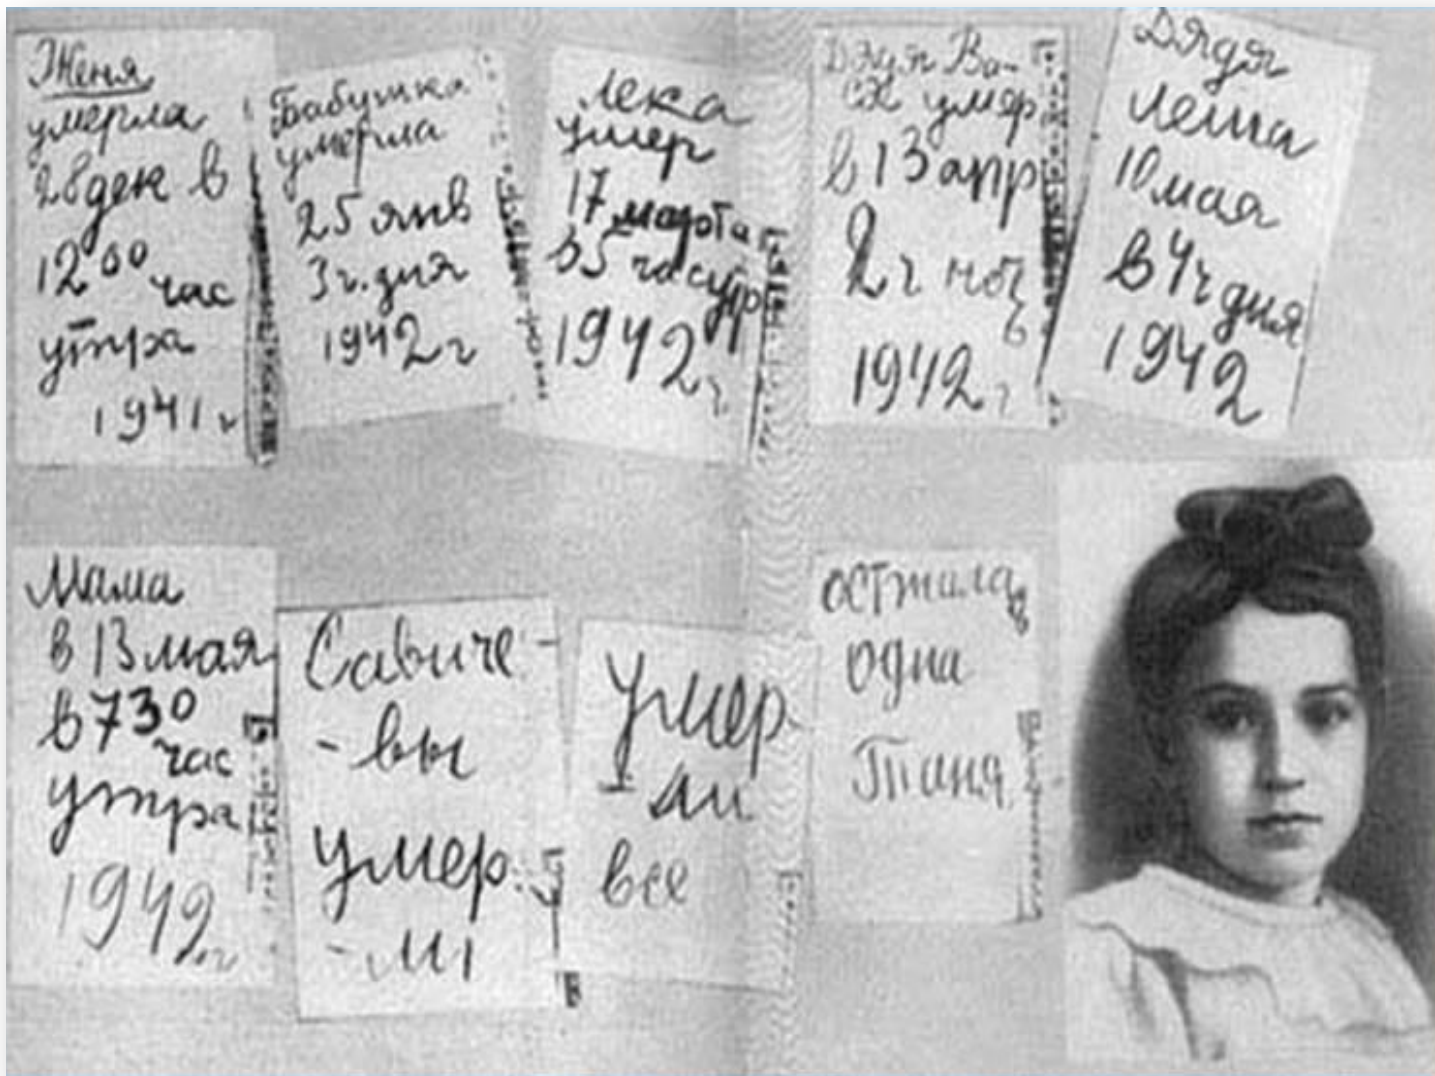 Женя
умерла
28 дек в
12⁰⁰ час
утра
1941 г
Бабушка
умерла
25 янв
3 ч. дня
1942 г
Лека
умер
17 марта
в 5 час утр
1942 г.
Дядя Ва-
ся умер
в 13 апр
2 ч ноч
ь
1942 г
Дядя
Леша
10 мая
в 4 ч дня
1942
Мама
в 13 мая
в 7³⁰
час
утра
1942 г
Савиче-
-вы
умер
-ли
Умер
-ли
все
Осталась
одна
Таня